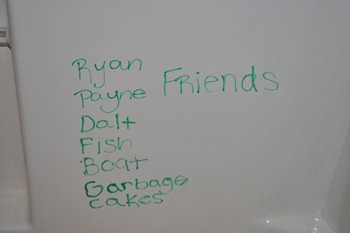 Ryan
Payne Friends
Dalt
Fish
Boat
Garbage
cakes